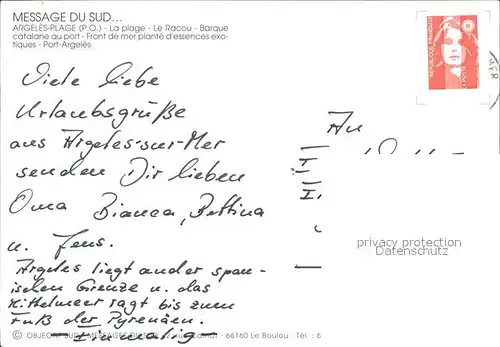 MESSAGE DU SUD...
ARGELÈS-PLAGE (P.O.) - La plage - Le Racou - Barque
catalane au port - Front de mer planté d'essences exo-
tiques - Port-Argelès
REPUBLIQUE FRANÇAISE
LA POSTE
Viele liebe
Urlaubsgrüße
aus Argeles-sur-Mer
senden Dir lieben
Oma Bianca, Bettina
u. Jens.
Argeles liegt an der span-
ischen Grenze u. das
Mittelmeer ragt bis zum
Fuß der Pyrenäen.
- Einmalig -
An
privacy protection
Datenschutz
© OBJECTIF SUD - MESSAGES DU SUD - 66160 Le Boulou - Tél. : 6